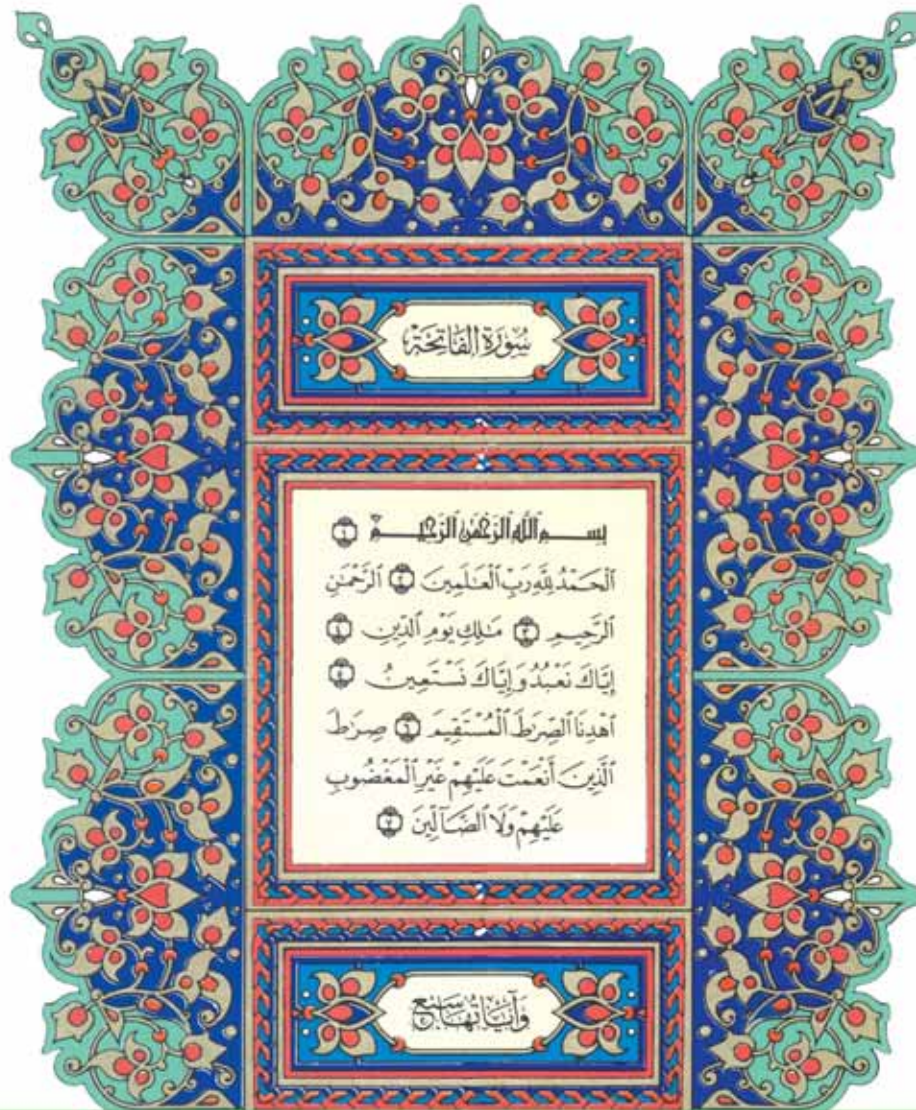 سُورَةُ الفَاتِحَةِ
بِسْمِ ٱللَّهِ ٱلرَّحْمَٰنِ ٱلرَّحِيمِ ١
ٱلْحَمْدُ لِلَّهِ رَبِّ ٱلْعَـٰلَمِينَ ٢ ٱلرَّحْمَـٰنِ
ٱلرَّحِيمِ ٣ مَـٰلِكِ يَوْمِ ٱلدِّينِ ٤
إِيَّاكَ نَعْبُدُ وَإِيَّاكَ نَسْتَعِينُ ٥
ٱهْدِنَا ٱلصِّرَٰطَ ٱلْمُسْتَقِيمَ ٦ صِرَٰطَ
ٱلَّذِينَ أَنْعَمْتَ عَلَيْهِمْ غَيْرِ ٱلْمَغْضُوبِ
عَلَيْهِمْ وَلَا ٱلضَّآلِّينَ ٧
وَآيَاتُهَا سَبْعٌ